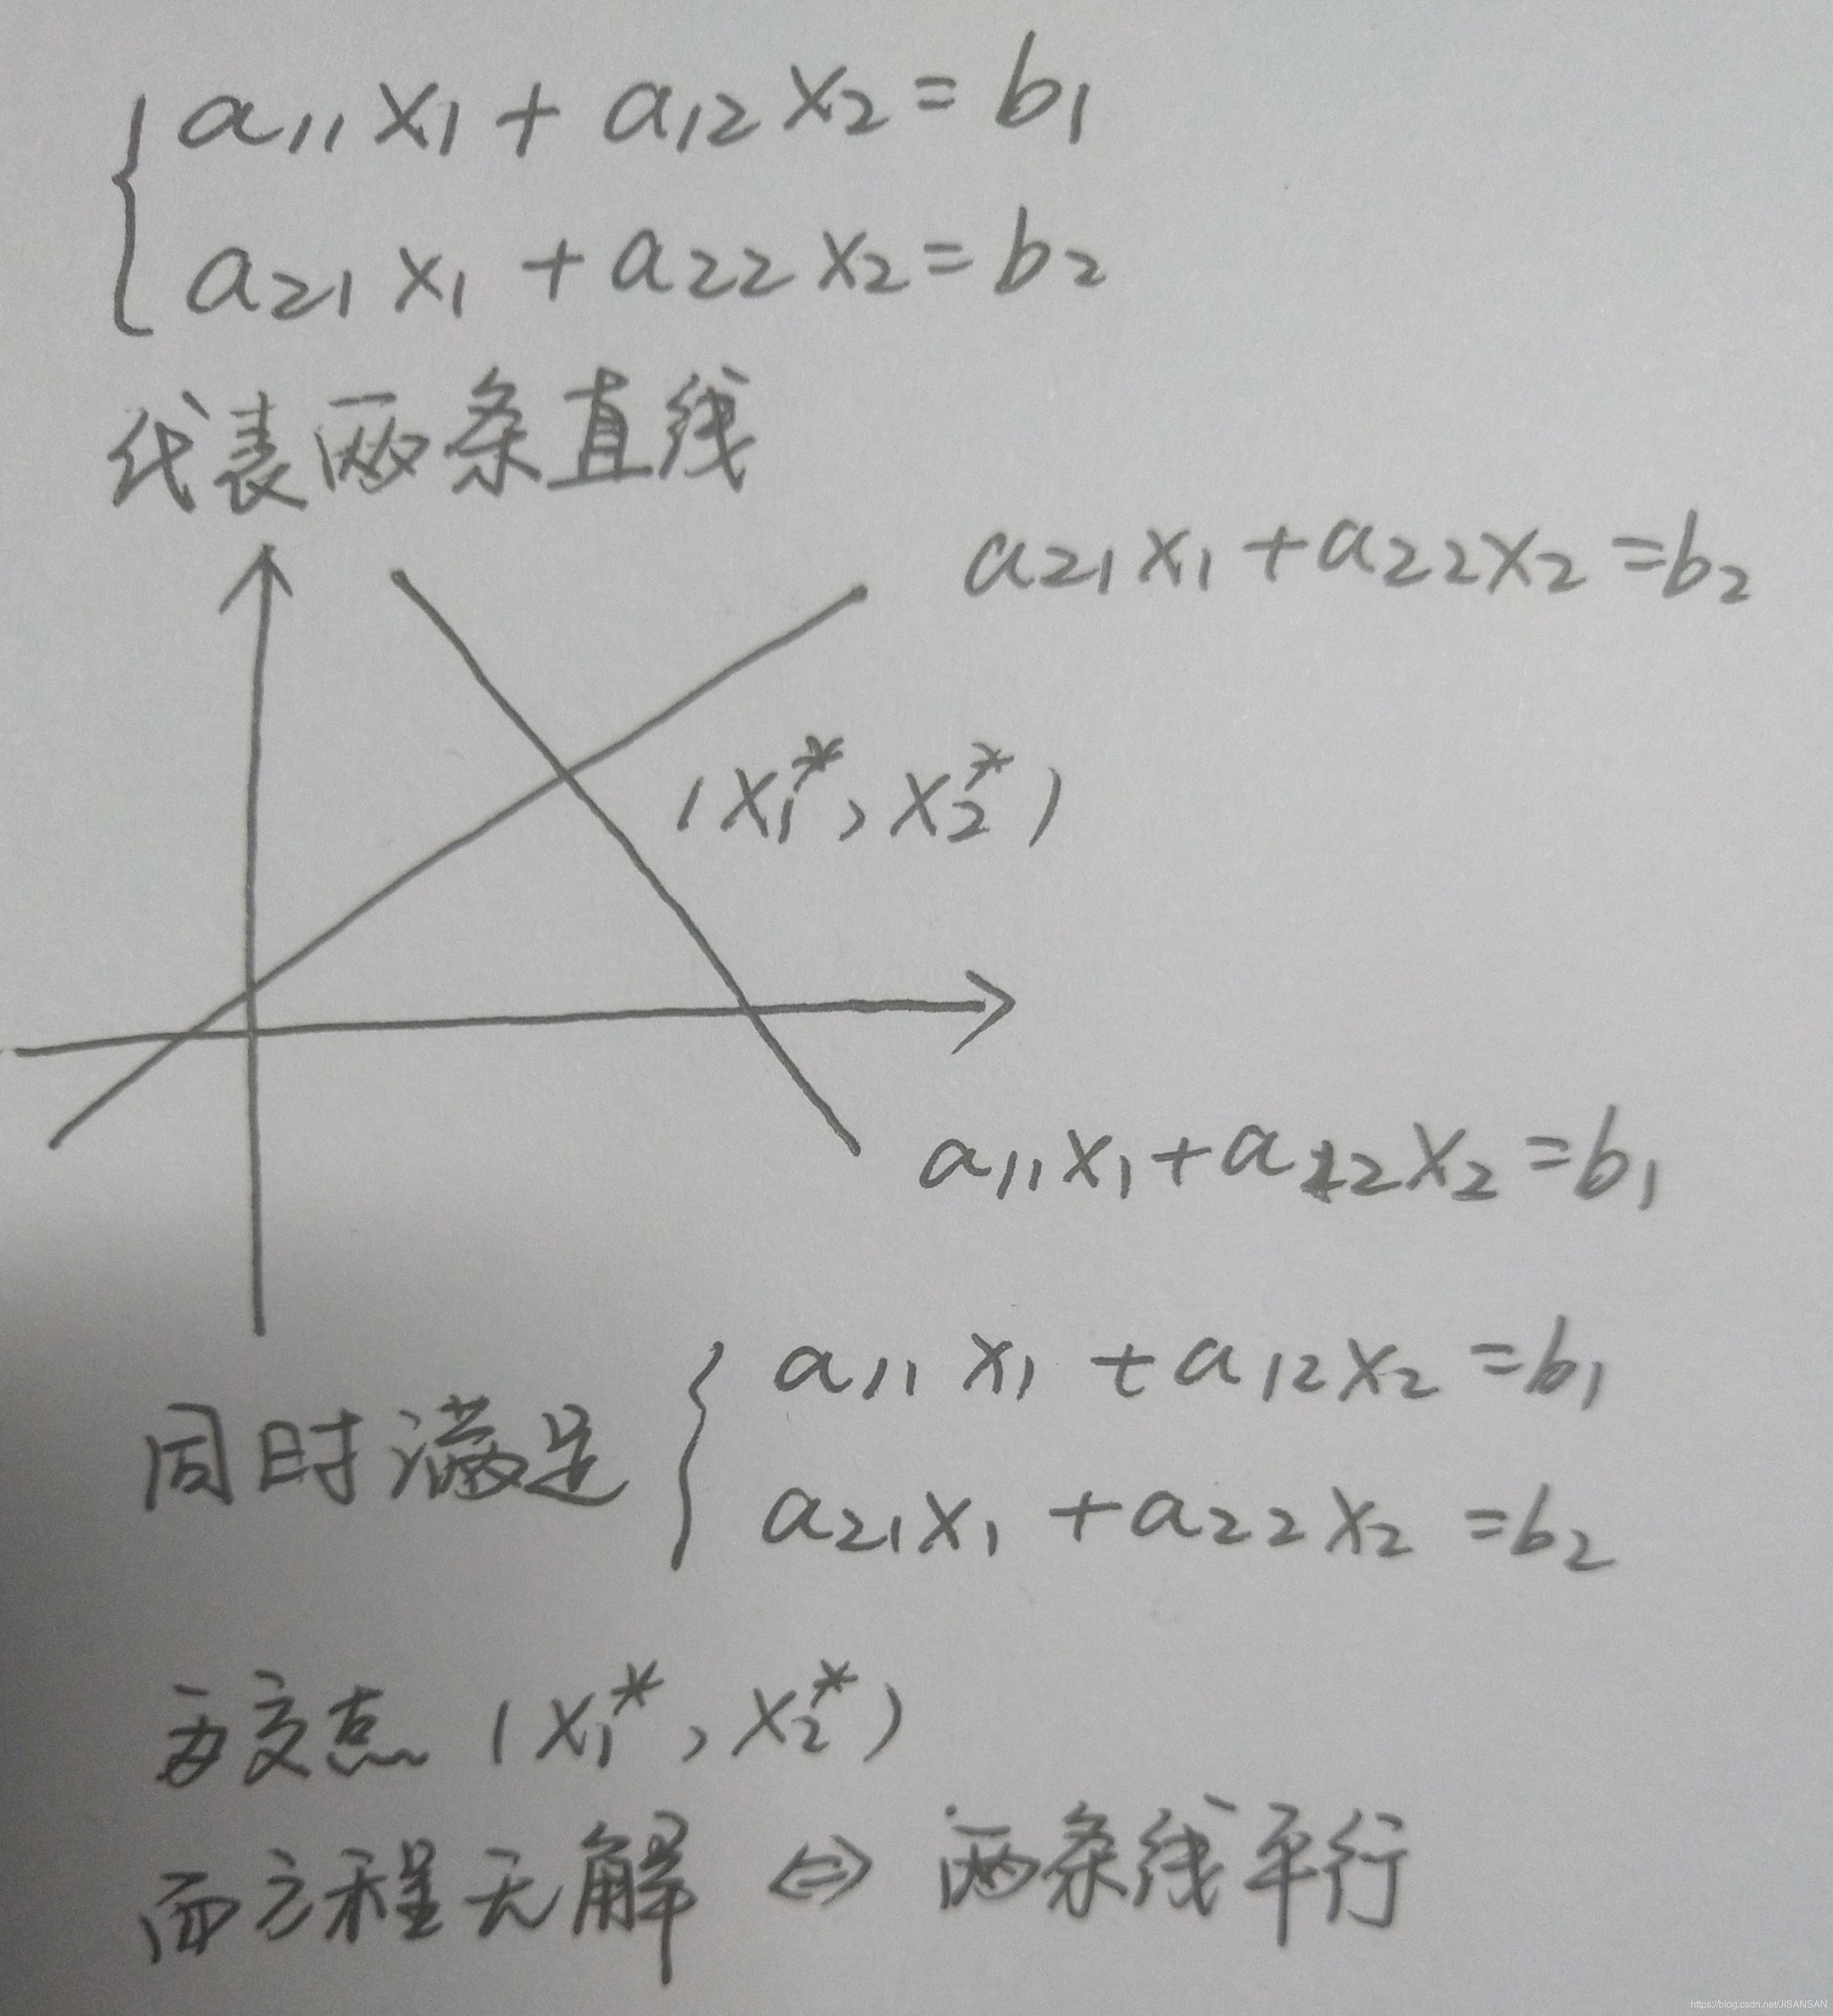 { a₁₁x₁ + a₁₂x₂ = b₁
a₂₁x₁ + a₂₂x₂ = b₂
代表两条直线
a₂₁x₁ + a₂₂x₂ = b₂
(x₁*, x₂*)
a₁₁x₁ + a₁₂x₂ = b₁
同时满足 { a₁₁x₁ + a₁₂x₂ = b₁
a₂₁x₁ + a₂₂x₂ = b₂
为交点 (x₁*, x₂*)
而方程无解 ⇔ 两条线平行
https://blog.csdn.net/JISANSAN